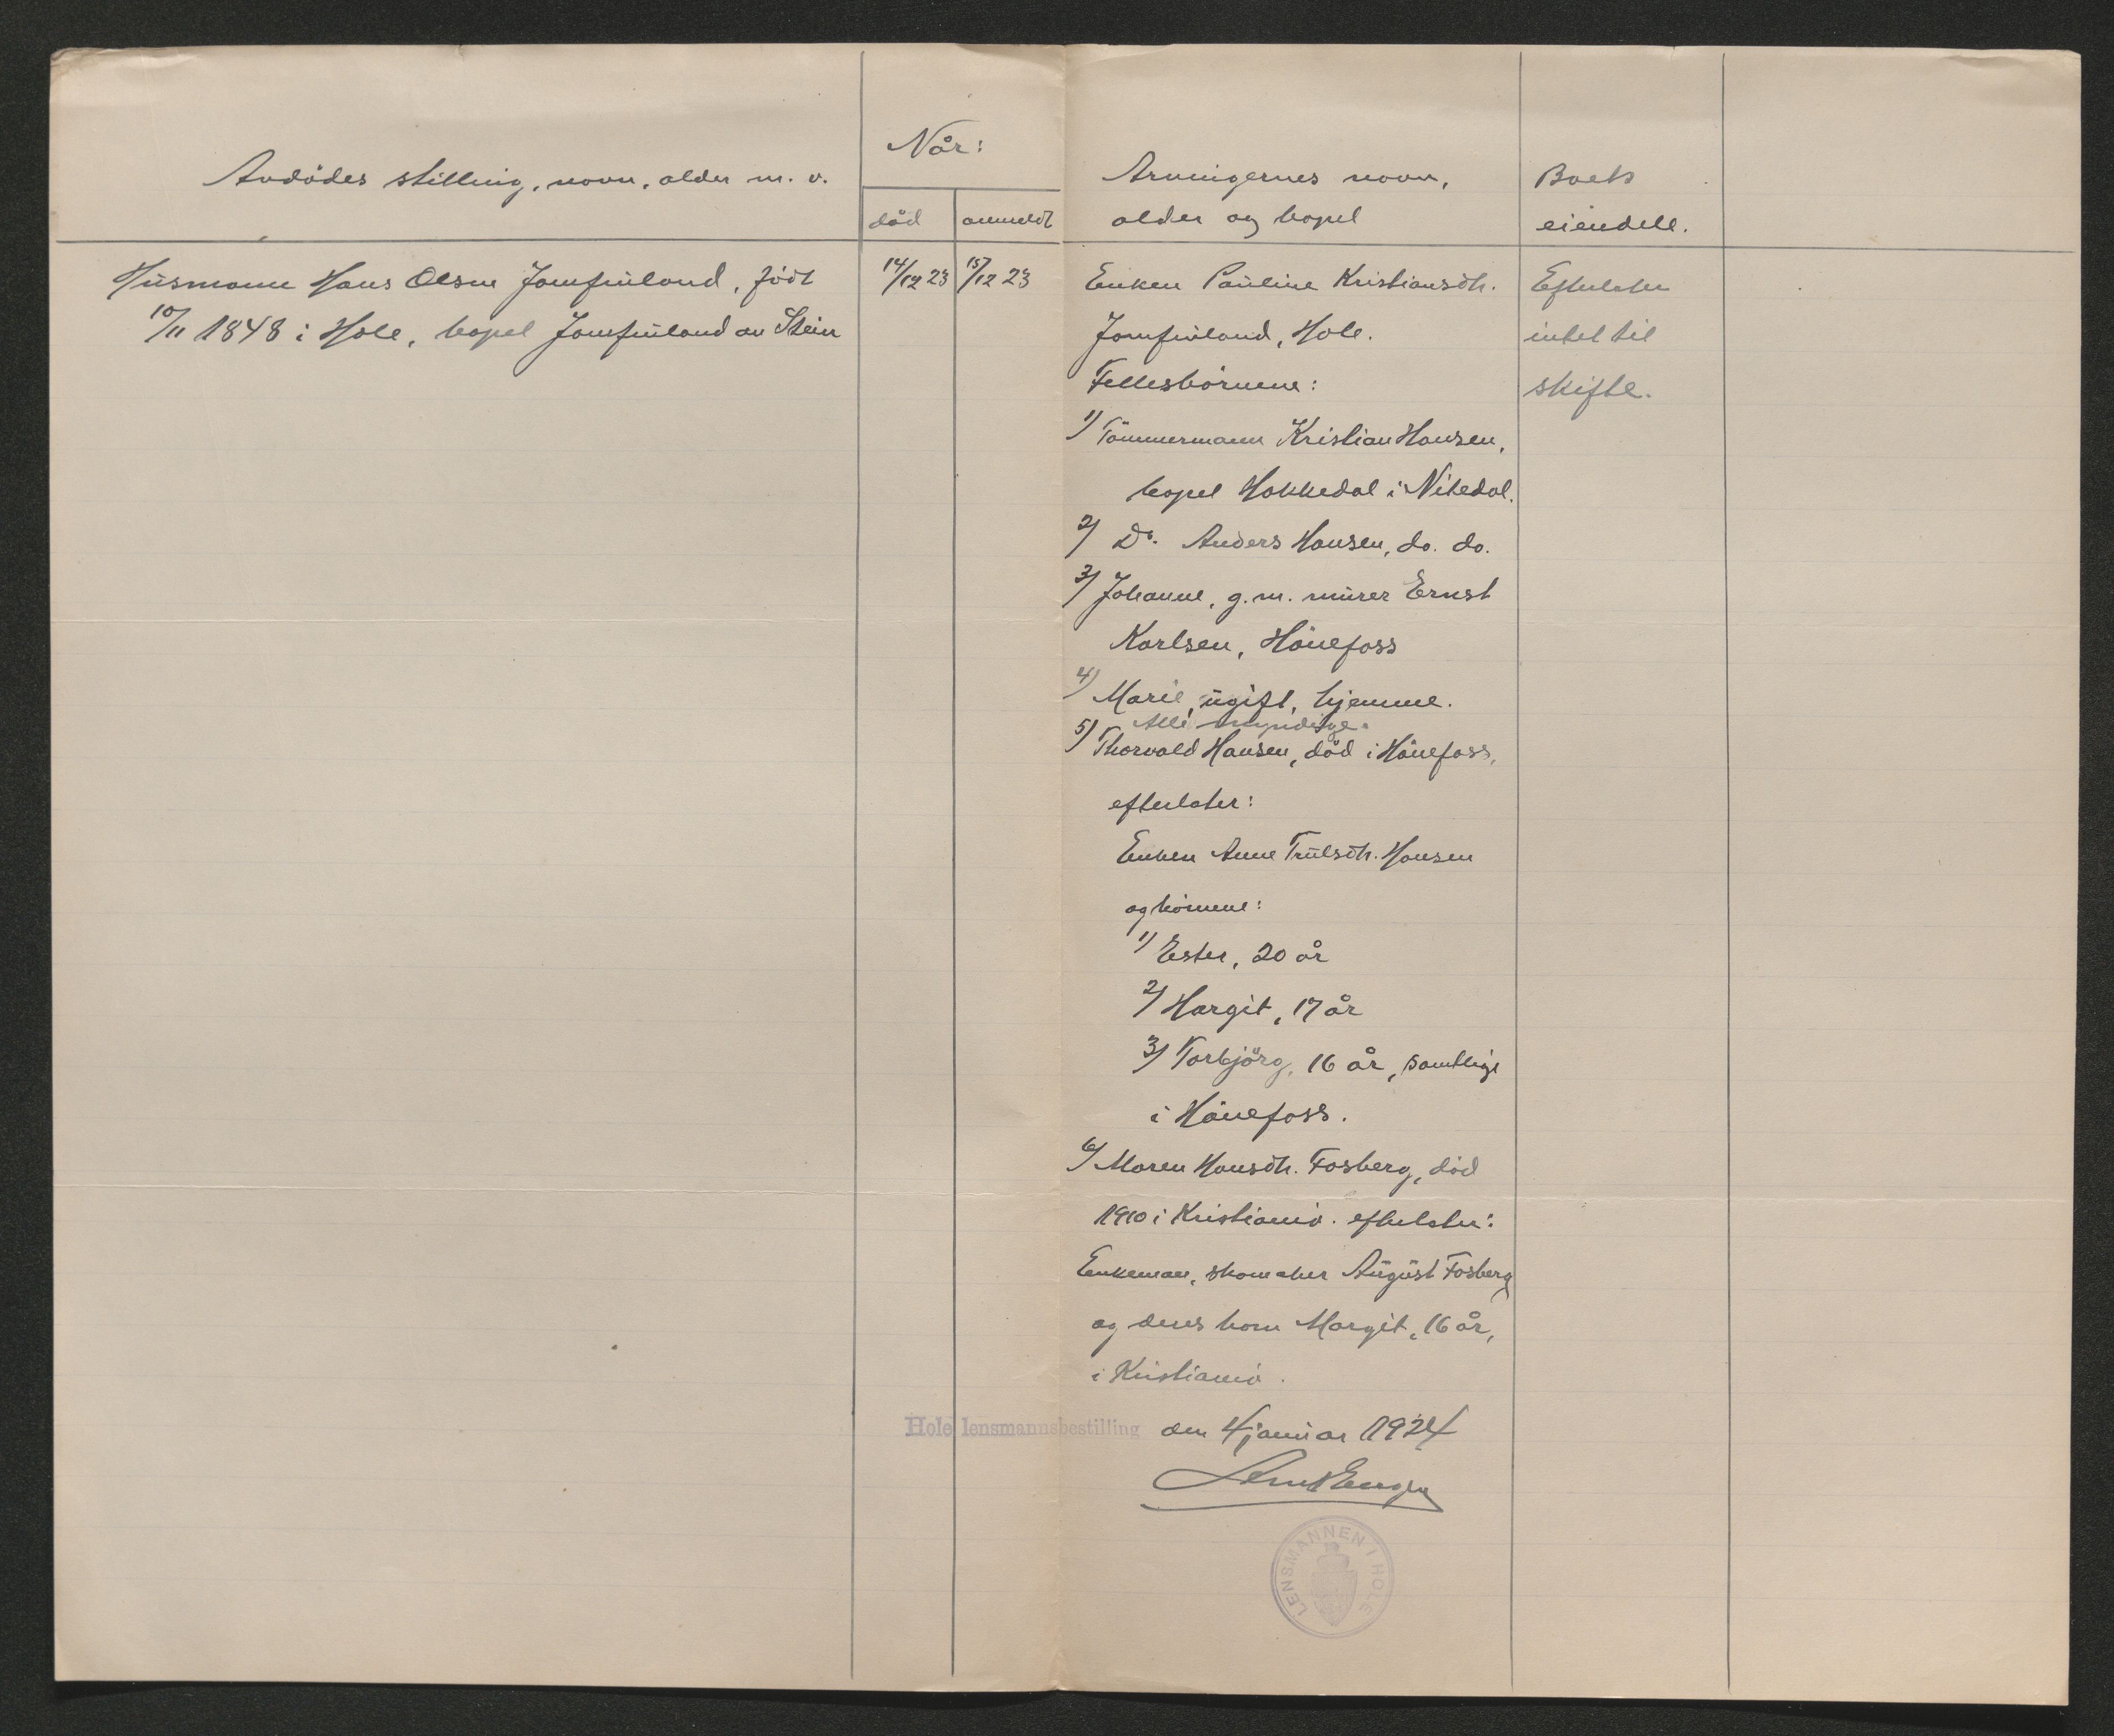 Avdödes stilling, navn, alder m. v.
Når:
död
anmeldt
Arvingernes navn,
alder og bopel
Boets
eiendele.
Husmann Hans Olsen Jomfruland, födt
10/11 1848 i Hole, bopel Jomfruland av Stein
14/12 23
15/12 23
Enken Pauline Kristiansdtr.
Jomfruland, Hole.
Fellesbörnene:
1) Tömmermann Kristian Hansen,
bopel Hakkedal i Nitedal.
2) Do. Anders Hansen, do. do.
3) Johanne, g.m. murer Ernst
Karlsen, Hönefoss
4) Marie, ugift, hjemme.
Alle myndige.
5) Thorvald Hansen, död i Hönefoss,
efterlater:
Enken Anne Trulsdtr. Hansen
og börnene:
1) Ester, 20 år
2) Margit, 17 år
3) Torbjörg, 16 år, samtlige
i Hönefoss.
6) Maren Hansdtr. Fosberg, död
1910 i Kristiania. efterlater:
Enkeman, skomaker August Fosberg
og deres barn Margit, 16 år,
i Kristiania.
Efterlater
intet til
skifte.
Hole lensmannsbestilling den 4 januar 1924
LENSMANNEN I HOLE